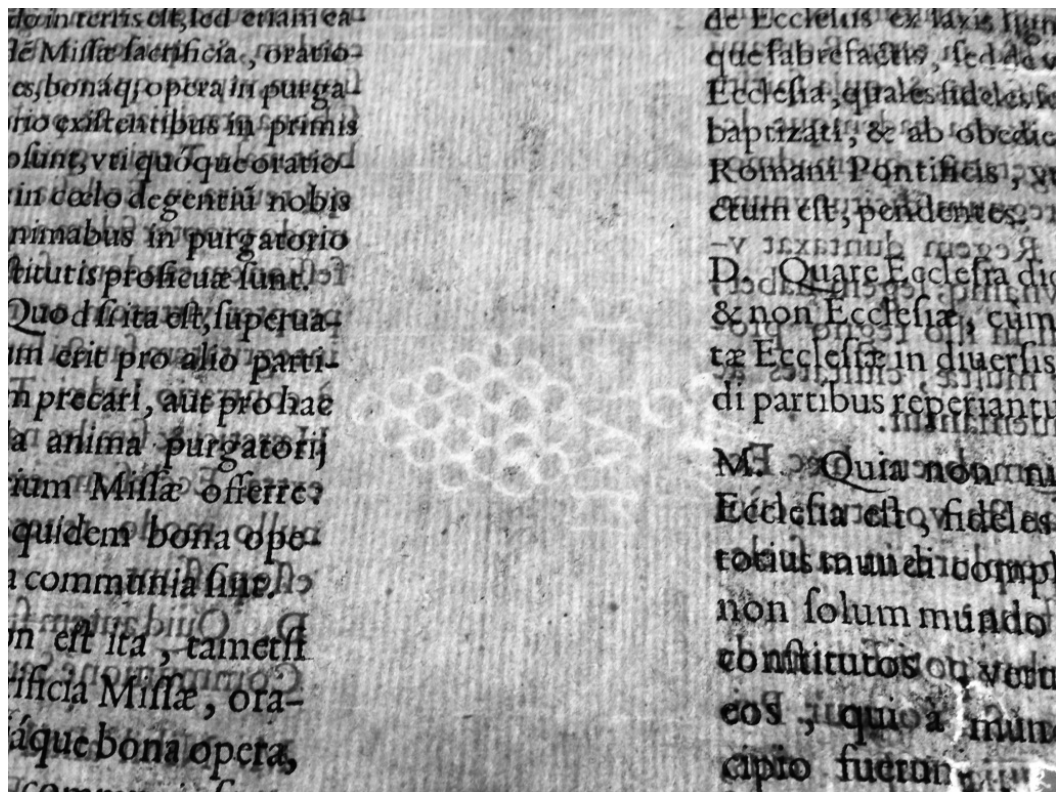 do in terris est, sed etiam ea-
dē Missæ sacrificia, oratio-
es, bonáq; opera in purga-
rio existentibus in primis
osunt, vti quoque oratio-
in cœlo degentiū nobis
nimabus in purgatorio
stitutis proficuæ sunt.
Quod si ita est, superua-
um erit pro alio parti-
m precari, aut pro hac
a anima purgatorij
ium Missæ offerre?
quidem bona ope-
a communia sint.
on est ita, tametsi
ificia Missæ, ora-
áque bona opera,
de Ecclesiis ex laxis lign
que fabrefactis, sed de v
Ecclesia, quales fideles s
baptizati, & ab obedie
Romani Pontificis, vt
ctum est, pendentes.
D. Quare Ecclesia dic
& non Ecclesiæ, cùm
tæ Ecclesiæ in diuersis
di partibus reperiantu
M. Quia non ni
Ecclesia est, fideles
totius mundi compl
non solum mundo
constitutos veru
eos, qui à mun
cipio fuerun